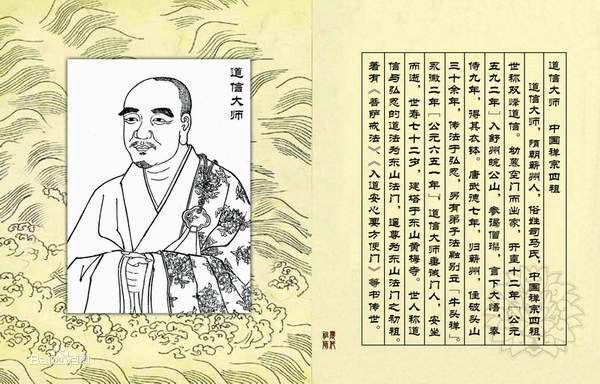 道信大师
道信大师　中国禅宗四祖
道信大师，隋朝蕲州人，俗姓司马氏，中国禅宗四祖，
世称双峰道信。幼慕空门而出家，开皇十二年「公元
五九二年」入舒州皖公山，参谒僧璨，言下大悟，奉
侍九年，得其衣钵。唐武德七年，归蕲州，住破头山
三十余年，传法于弘忍，另有弟子法融别立「牛头禅」。
永徽二年「公元六五一年」，道信大师垂诫门人，安坐
而逝，世寿七十二岁，建塔于东山黄梅寺。世人称道
信与弘忍的道法为东山法门，遥尊为东山法门之初祖。
著有《菩萨戒法》《入道安心要方便门》等书传世。